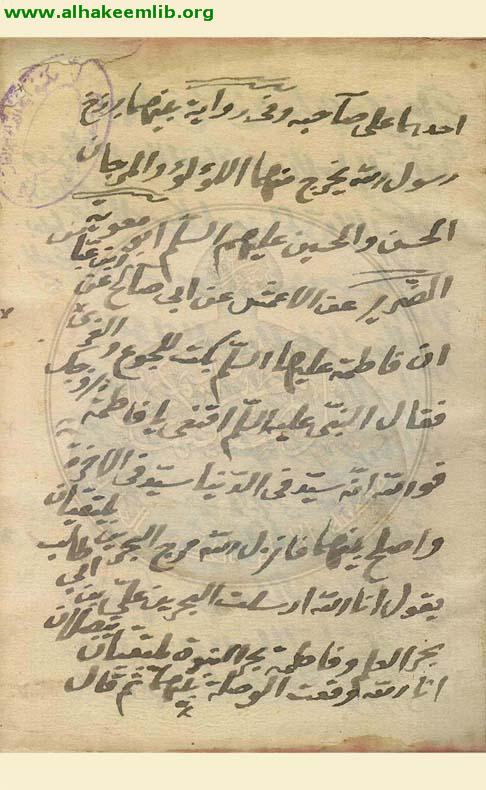 www.alhakeemlib.org
احدهما على صاحبه وفى رواية بينهما برزخ
رسول الله يخرج منهما اللؤلؤ والمرجان
الحسن والحسين عليهم السلم ابو معوية
الضرير عن الاعمش عن ابى صالح عن ابن عباس
ان فاطمة عليها السلم بكت للجوع و العرى
فقال النبى عليه السلم اقنعى يا فاطمة بزوجك
فوالله انه سيد فى الدنيا سيد فى الاخرة
واصلح بينهما فانزل الله مرج البحرين يلتقيان
يقول انا الله ارسلت البحرين على بن ابى طالب
بحر العلم وفاطمة بحر النبوة يلتقيان يتصلان
انا الله اوقعت الوصلة بينهما ثم قال